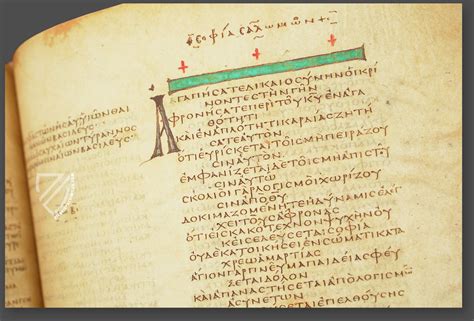 ΤΩΝΗΣΑΥΥΙΩΝΘΑΙ
ΝΩΝΒΑΣΙΛΕΥΣ
ΑΥΧΑΙΩΝΤΥΡΑΝΝΟΣ
ΜΙΝΑΙΩΝΒΑΣΙΛΕΥΣ
ΣΟΦΙΑ ΣΑΛΩΜΩΝΟΣ
ΑΓΑΠΗΣΑΤΕΔΙΚΑΙΟΣΥΝΗΝΟΙΚΡΙ
ΝΟΝΤΕΣΤΗΝΓΗΝ
ΦΡΟΝΗΣΑΤΕΠΕΡΙΤΟΥΚΥΕΝΑΓΑ
ΘΟΤΗΤΙ
ΚΑΙΕΝΑΠΛΟΤΗΤΙΚΑΡΔΙΑΣΖΗΤΗ
ΣΑΤΕΑΥΤΟΝ
ΟΤΙΕΥΡΙΣΚΕΤΑΙΤΟΙΣΜΗΠΕΙΡΑΖΟΥ
ΣΙΝΑΥΤΟΝ
ΕΜΦΑΝΙΖΕΤΑΙΔΕΤΟΙΣΜΗΑΠΙΣΤΟΥ
ΣΙΝΑΥΤΩ
ΣΚΟΛΙΟΙΓΑΡΛΟΓΙΣΜΟΙΧΩΡΙΖΟΥ
ΣΙΝΑΠΟΘΥ
ΔΟΚΙΜΑΖΟΜΕΝΗΤΕΗΔΥΝΑΜΙΣΕΛΕΓ
ΧΕΙΤΟΥΣΑΦΡΟΝΑΣ
ΟΤΙΕΙΣΚΑΚΟΤΕΧΝΟΝΨΥΧΗΝΟΥ
ΚΕΙΣΕΛΕΥΣΕΤΑΙΣΟΦΙΑ
ΟΥΔΕΚΑΤΟΙΚΗΣΕΙΕΝΣΩΜΑΤΙΚΑΤΑ
ΧΡΕΩΑΜΑΡΤΙΑΣ
ΑΓΙΟΝΓΑΡΠΝΕΥΜΑΠΑΙΔΕΙΑΣΦΕΥ
ΞΕΤΑΙΔΟΛΟΝ
ΚΑΙΑΠΑΝΑΣΤΗΣΕΤΑΙΑΠΟΛΟΓΙΣΜΩ
ΑΣΥΝΕΤΩΝ